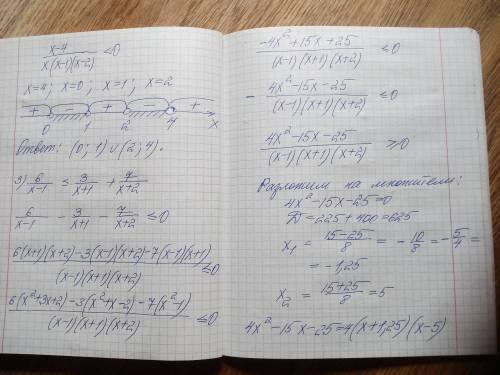 x-4 / x(x-1)(x-2) ≤0
x=4; x=0; x=1; x=2
+ - + - +
0 1 2 4 x
Ответ: (0; 1) ∪ (2; 4).
3) 6/(x-1) ≤ 3/(x+1) + 7/(x+2)
6/(x-1) - 3/(x+1) - 7/(x+2) ≤0
6(x+1)(x+2)-3(x-1)(x+2)-7(x-1)(x+1) / (x-1)(x+1)(x+2) ≤0
6(x²+3x+2)-3(x²+x-2)-7(x²-1) / (x-1)(x+1)(x+2) ≤0
-4x²+15x+25 / (x-1)(x+1)(x+2) ≤0
- 4x²-15x-25 / (x-1)(x+1)(x+2) ≤0
4x²-15x-25 / (x-1)(x+1)(x+2) ≥0
Разложим на множители:
4x²-15x-25=0
D=225+400=625
x₁ = (15-25)/8 = -10/8 = -5/4 =
= -1,25
x₂ = (15+25)/8 = 5
4x²-15x-25=4(x+1,25)(x-5)